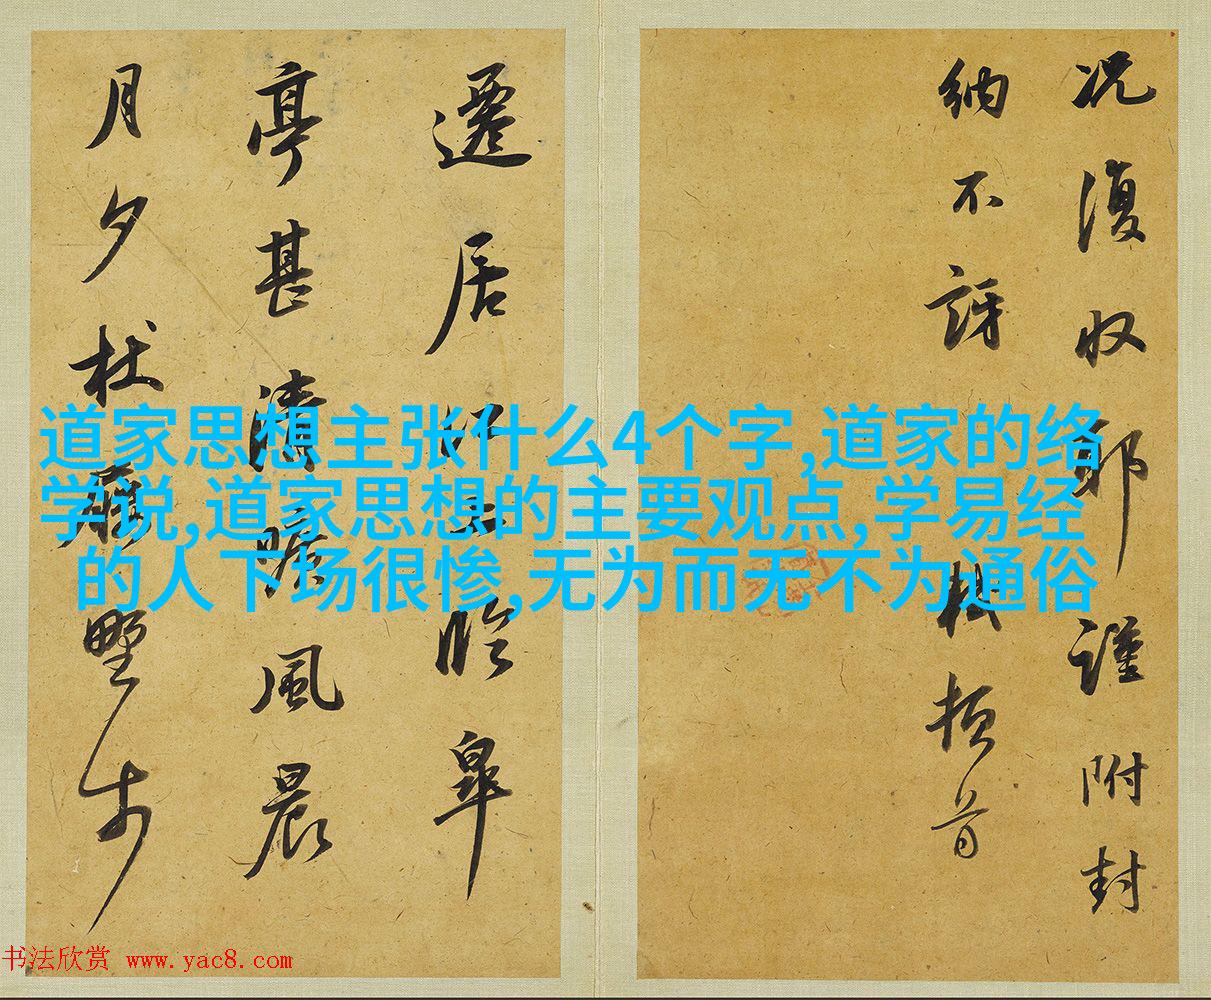 道家思想主张什么4个字,道家的络
学说,道家思想的主要观点,学易经
的人下场很惨,无为而无不为通俗
况復收耶謹附封
納不訝頓首
遷居上臨皋
亭甚清曠風晨
月夕杖野步
书法欣赏 www.yac8.com